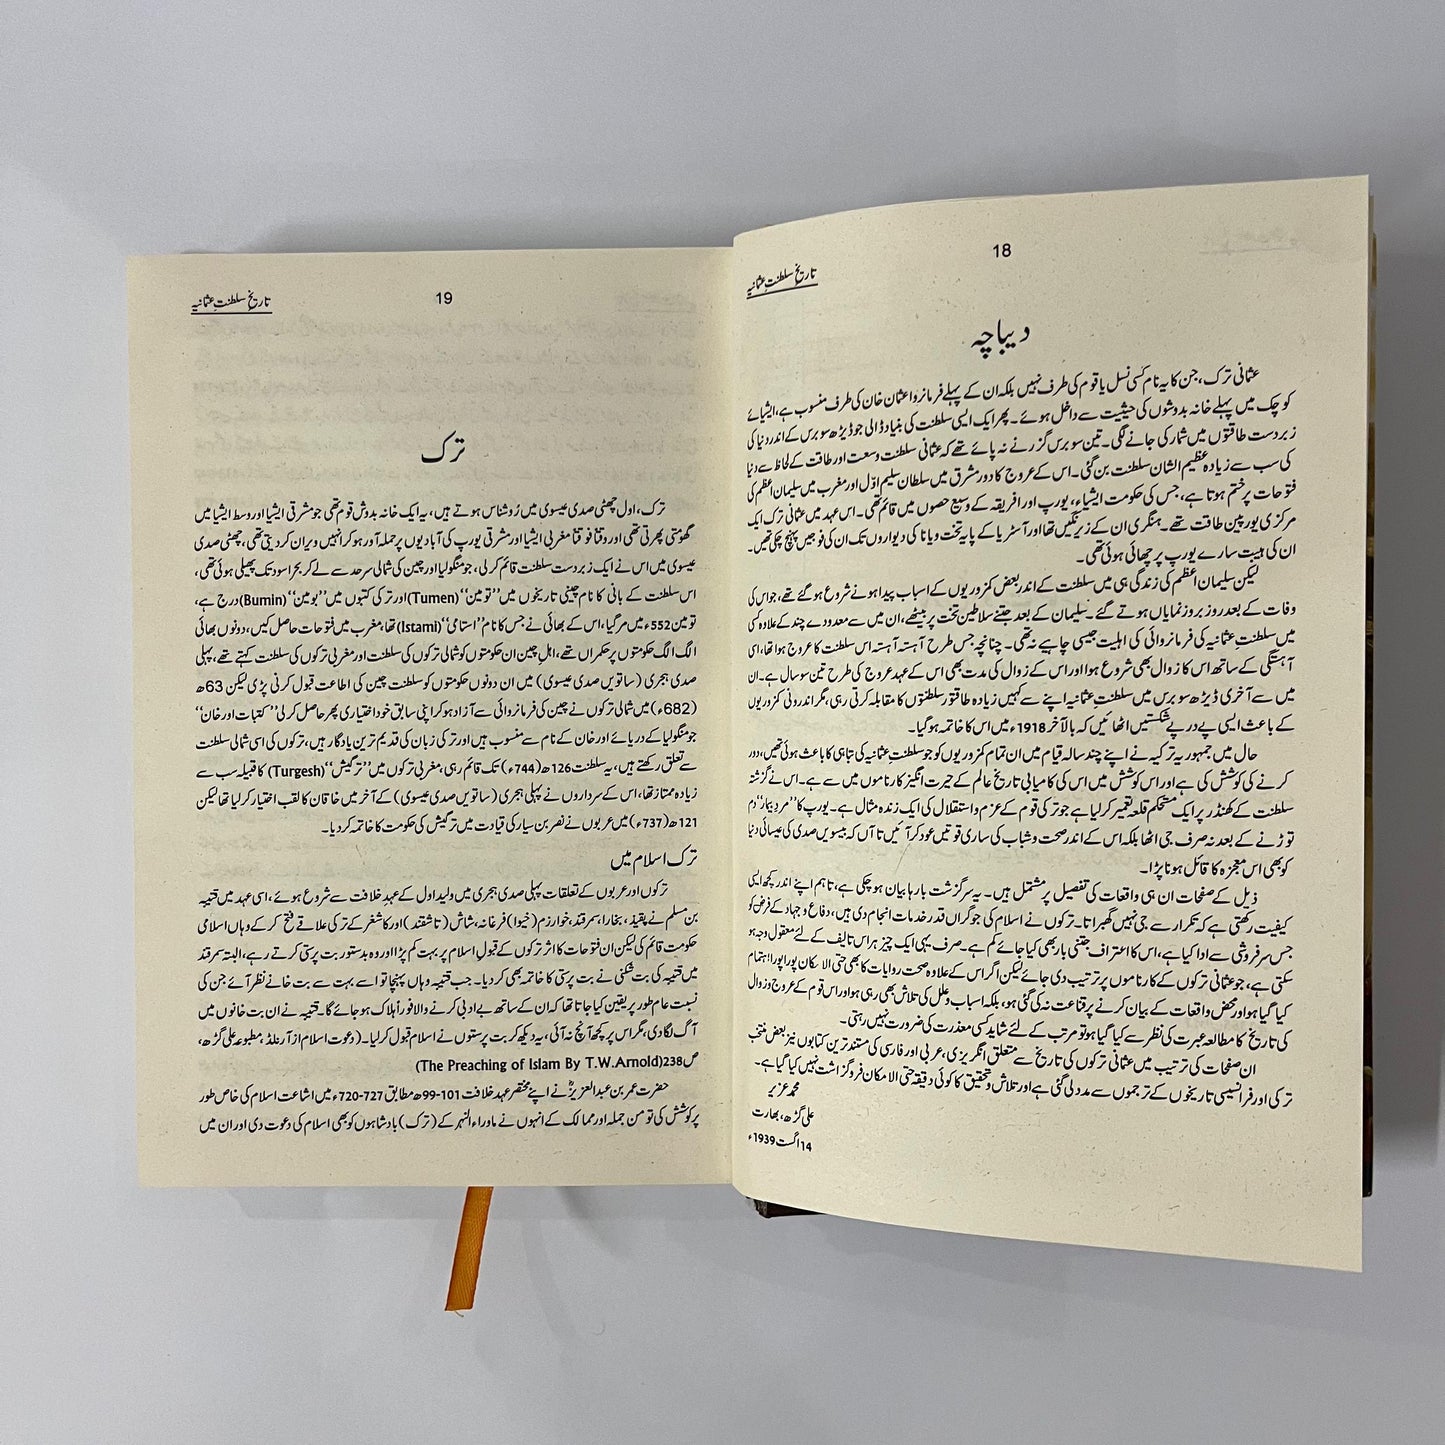 18
تاریخ سلطنتِ عثمانیہ
دیباچہ
عثمانی ترک، جن کا یہ نام کسی نسل یا قوم کی طرف نہیں بلکہ ان کے پہلے فرمانروا عثمان خان کی طرف منسوب ہے، ایشیائے
کوچک میں پہلے خانہ بدوشوں کی حیثیت سے داخل ہوئے۔ پھر ایک ایسی سلطنت کی بنیاد ڈالی جو ڈیڑھ سو برس کے اندر دنیا کی
زبردست طاقتوں میں شمار کی جانے لگی۔ تین سو برس گزرنے نہ پائے تھے کہ عثمانی سلطنت وسعت اور طاقت کے لحاظ سے دنیا
کی سب سے زیادہ عظیم الشان سلطنت بن گئی۔ اس کے عروج کا دور مشرق میں سلطان سلیم اوّل اور مغرب میں سلیمان اعظم کی
فتوحات پر ختم ہوتا ہے، جس کی حکومت ایشیاء، یورپ اور افریقہ کے وسیع حصوں میں قائم تھی۔ اس عہد میں عثمانی ترک ایک
مرکزی یورپین طاقت تھے۔ ہنگری ان کے زیرنگیں تھا اور آسٹریا کے پایہ تخت ویانا کی دیواروں تک ان کی فوجیں پہنچ چکی تھیں۔
ان کی ہیبت سارے یورپ پر چھائی ہوئی تھی۔
لیکن سلیمان اعظم کی زندگی ہی میں سلطنت کے اندر بعض کمزوریوں کے اسباب پیدا ہونے شروع ہو گئے تھے، جو اس کی
وفات کے بعد روز بروز نمایاں ہوتے گئے۔ سلیمان کے بعد جتنے سلاطین تخت پر بیٹھے، ان میں سے معدودے چند کے علاوہ کسی
میں سلطنتِ عثمانیہ کی فرمانروائی کی اہلیت جیسی چاہیے نہ تھی۔ چنانچہ جس طرح آہستہ آہستہ اس سلطنت کا عروج ہوا تھا، اسی
آہستگی کے ساتھ اس کا زوال بھی شروع ہوا اور اس کے زوال کی مدت بھی اس کے عہد عروج کی طرح تین سو سال ہے۔ ان
میں سے آخری ڈیڑھ سو برس میں سلطنتِ عثمانیہ اپنے سے کہیں زیادہ طاقتور سلطنتوں کا مقابلہ کرتی رہی، مگر اندرونی کمزوریوں
کے باعث ایسی پے در پے شکستیں اٹھائیں کہ بالآخر 1918ء میں اس کا خاتمہ ہو گیا۔
حال میں جمہوریہ ترکیہ نے اپنے چند سالہ قیام میں ان تمام کمزوریوں کو جو سلطنتِ عثمانیہ کی تباہی کا باعث ہوئی تھیں، دور
کرنے کی کوشش کی ہے اور اس کوشش میں اس کی کامیابی تاریخ عالم کے حیرت انگیز کارناموں میں سے ہے۔ اس نے گزشتہ
سلطنت کے کھنڈر پر ایک مستحکم قلعہ تعمیر کر لیا ہے جو ترکی قوم کے عزم و استقلال کی ایک زندہ مثال ہے۔ یورپ کا ”مرد بیمار“ دم
توڑنے کے بعد نہ صرف جی اٹھا بلکہ اس کے اندر صحت و شباب کی ساری قوتیں عود کر آئیں تا آں کہ بیسویں صدی کی عیسائی دنیا
کو بھی اس معجزہ کا قائل ہونا پڑا۔
ذیل کے صفحات ان ہی واقعات کی تفصیل پر مشتمل ہیں۔ یہ سرگزشت بارہا بیان ہو چکی ہے، تاہم اپنے اندر کچھ ایسی
کیفیت رکھتی ہے کہ تکرار سے جی نہیں گھبراتا۔ ترکوں نے اسلام کی جو گراں قدر خدمات انجام دی ہیں، دفاع و جہاد کے فرض کو
جس سرفروشی سے ادا کیا ہے، اس کا اعتراف جتنی بار بھی کیا جائے کم ہے۔ صرف یہی ایک چیز ہر اس تالیف کے لئے معقول وجہ ہو
سکتی ہے، جو عثمانی ترکوں کے کارناموں پر ترتیب دی جائے لیکن اگر اس کے علاوہ صحت روایات کا بھی حتی الامکان پورا پورا اہتمام
کیا گیا ہو اور محض واقعات کے بیان کرنے پر قناعت نہ کی گئی ہو، بلکہ اسباب و علل کی تلاش بھی رہی ہو اور اس قوم کے عروج و زوال
کی تاریخ کا مطالعہ عبرت کی نظر سے کیا گیا ہو تو مرتب کے لئے شاید کسی معذرت کی ضرورت نہیں رہتی۔
ان صفحات کی ترتیب میں عثمانی ترکوں کی تاریخ سے متعلق انگریزی، عربی اور فارسی کی مستند ترین کتابوں نیز بعض منتخب
ترکی اور فرانسیسی تاریخوں کے ترجموں سے مدد لی گئی ہے اور تلاش و تحقیق کا کوئی دقیقہ حتی الامکان فروگزاشت نہیں کیا گیا ہے۔
محمد عزیر
علی گڑھ، بھارت
14 اگست 1939ء
19
تاریخ سلطنتِ عثمانیہ
ترک
ترک، اول چھٹی صدی عیسوی میں روشناس ہوتے ہیں، یہ ایک خانہ بدوش قوم تھی جو مشرقی ایشیا اور وسط ایشیا میں
گھومتی پھرتی تھی اور وقتاً فوقتاً مغربی ایشیا اور مشرقی یورپ کی آبادیوں پر حملہ آور ہو کر انہیں ویران کر دیتی تھی، چھٹی صدی
عیسوی میں اس نے ایک زبردست سلطنت قائم کر لی، جو منگولیا اور چین کی شمالی سرحد سے لے کر بحر اسود تک پھیلی ہوئی تھی،
اس سلطنت کے بانی کا نام چینی تاریخوں میں ”تومین“ (Tumen) اور ترکی کتبوں میں ”بومین“ (Bumin) درج ہے،
تومین 552ء میں مر گیا، اس کے بھائی نے جس کا نام ”استامی“ (Istami) تھا، مغرب میں فتوحات حاصل کیں، دونوں بھائی
الگ الگ حکومتوں پر حکمراں تھے، اہلِ چین ان حکومتوں کو شمالی ترکوں کی سلطنت اور مغربی ترکوں کی سلطنت کہتے تھے، پہلی
صدی ہجری (ساتویں صدی عیسوی) میں ان دونوں حکومتوں کو سلطنت چین کی اطاعت قبول کرنی پڑی لیکن 63ھ
(682ء) میں شمالی ترکوں نے چین کی فرمانروائی سے آزاد ہو کر اپنی سابق خود اختیاری پھر حاصل کر لی ”کتبات اور خان“
جو منگولیا کے دریائے اور خان کے نام سے منسوب ہیں اور ترکی زبان کی قدیم ترین یادگار ہیں، ترکوں کی اسی شمالی سلطنت
سے تعلق رکھتے ہیں، یہ سلطنت 126ھ (744ء) تک قائم رہی، مغربی ترکوں میں ”ترگیش“ (Turgesh) کا قبیلہ سب سے
زیادہ ممتاز تھا، اس کے سرداروں نے پہلی ہجری (ساتویں صدی عیسوی) کے آخر میں خاقان کا لقب اختیار کر لیا تھا لیکن
121ھ (737ء) میں عربوں نے نصر بن سیار کی قیادت میں ترگیش کی حکومت کا خاتمہ کر دیا۔
ترک اسلام میں
ترکوں اور عربوں کے تعلقات پہلی صدی ہجری میں ولید اول کے عہد خلافت سے شروع ہوئے، اسی عہد میں قتیبہ
بن مسلم نے بخارا، سمرقند، خوارزم (خیوا) فرغانہ، شاش (تاشقند) اور کاشغر کے ترکی علاقے فتح کر کے وہاں اسلامی
حکومت قائم کی لیکن ان فتوحات کا اثر ترکوں کے قبولِ اسلام پر بہت کم پڑا اور وہ بدستور بت پرستی کرتے رہے، البتہ سمرقند
میں قتیبہ کی بت شکنی نے بت پرستی کا خاتمہ بھی کر دیا۔ جب قتیبہ وہاں پہنچا تو اسے بہت سے بت خانے نظر آئے جن کی
نسبت عام طور پر یقین کیا جاتا تھا کہ ان کے ساتھ بے ادبی کرنے والا فوراً ہلاک ہو جائے گا۔ قتیبہ نے ان بت خانوں میں
آگ لگا دی، مگر اس پر کچھ آنچ نہ آئی، یہ دیکھ کر بت پرستوں نے اسلام قبول کر لیا۔ (دعوت اسلام از آرنلڈ، مطبوعہ علی گڑھ،
ص238 (The Preaching of Islam By T.W.Arnold)
حضرت عمر بن عبدالعزیزؒ نے اپنے مختصر عہد خلافت 101-99ھ مطابق 727-720ء میں اشاعت اسلام کی خاص طور
پر کوشش کی تو من جملہ اور ممالک کے انہوں نے ماوراء النہر کے (ترک) بادشاہوں کو بھی اسلام کی دعوت دی اور ان میں